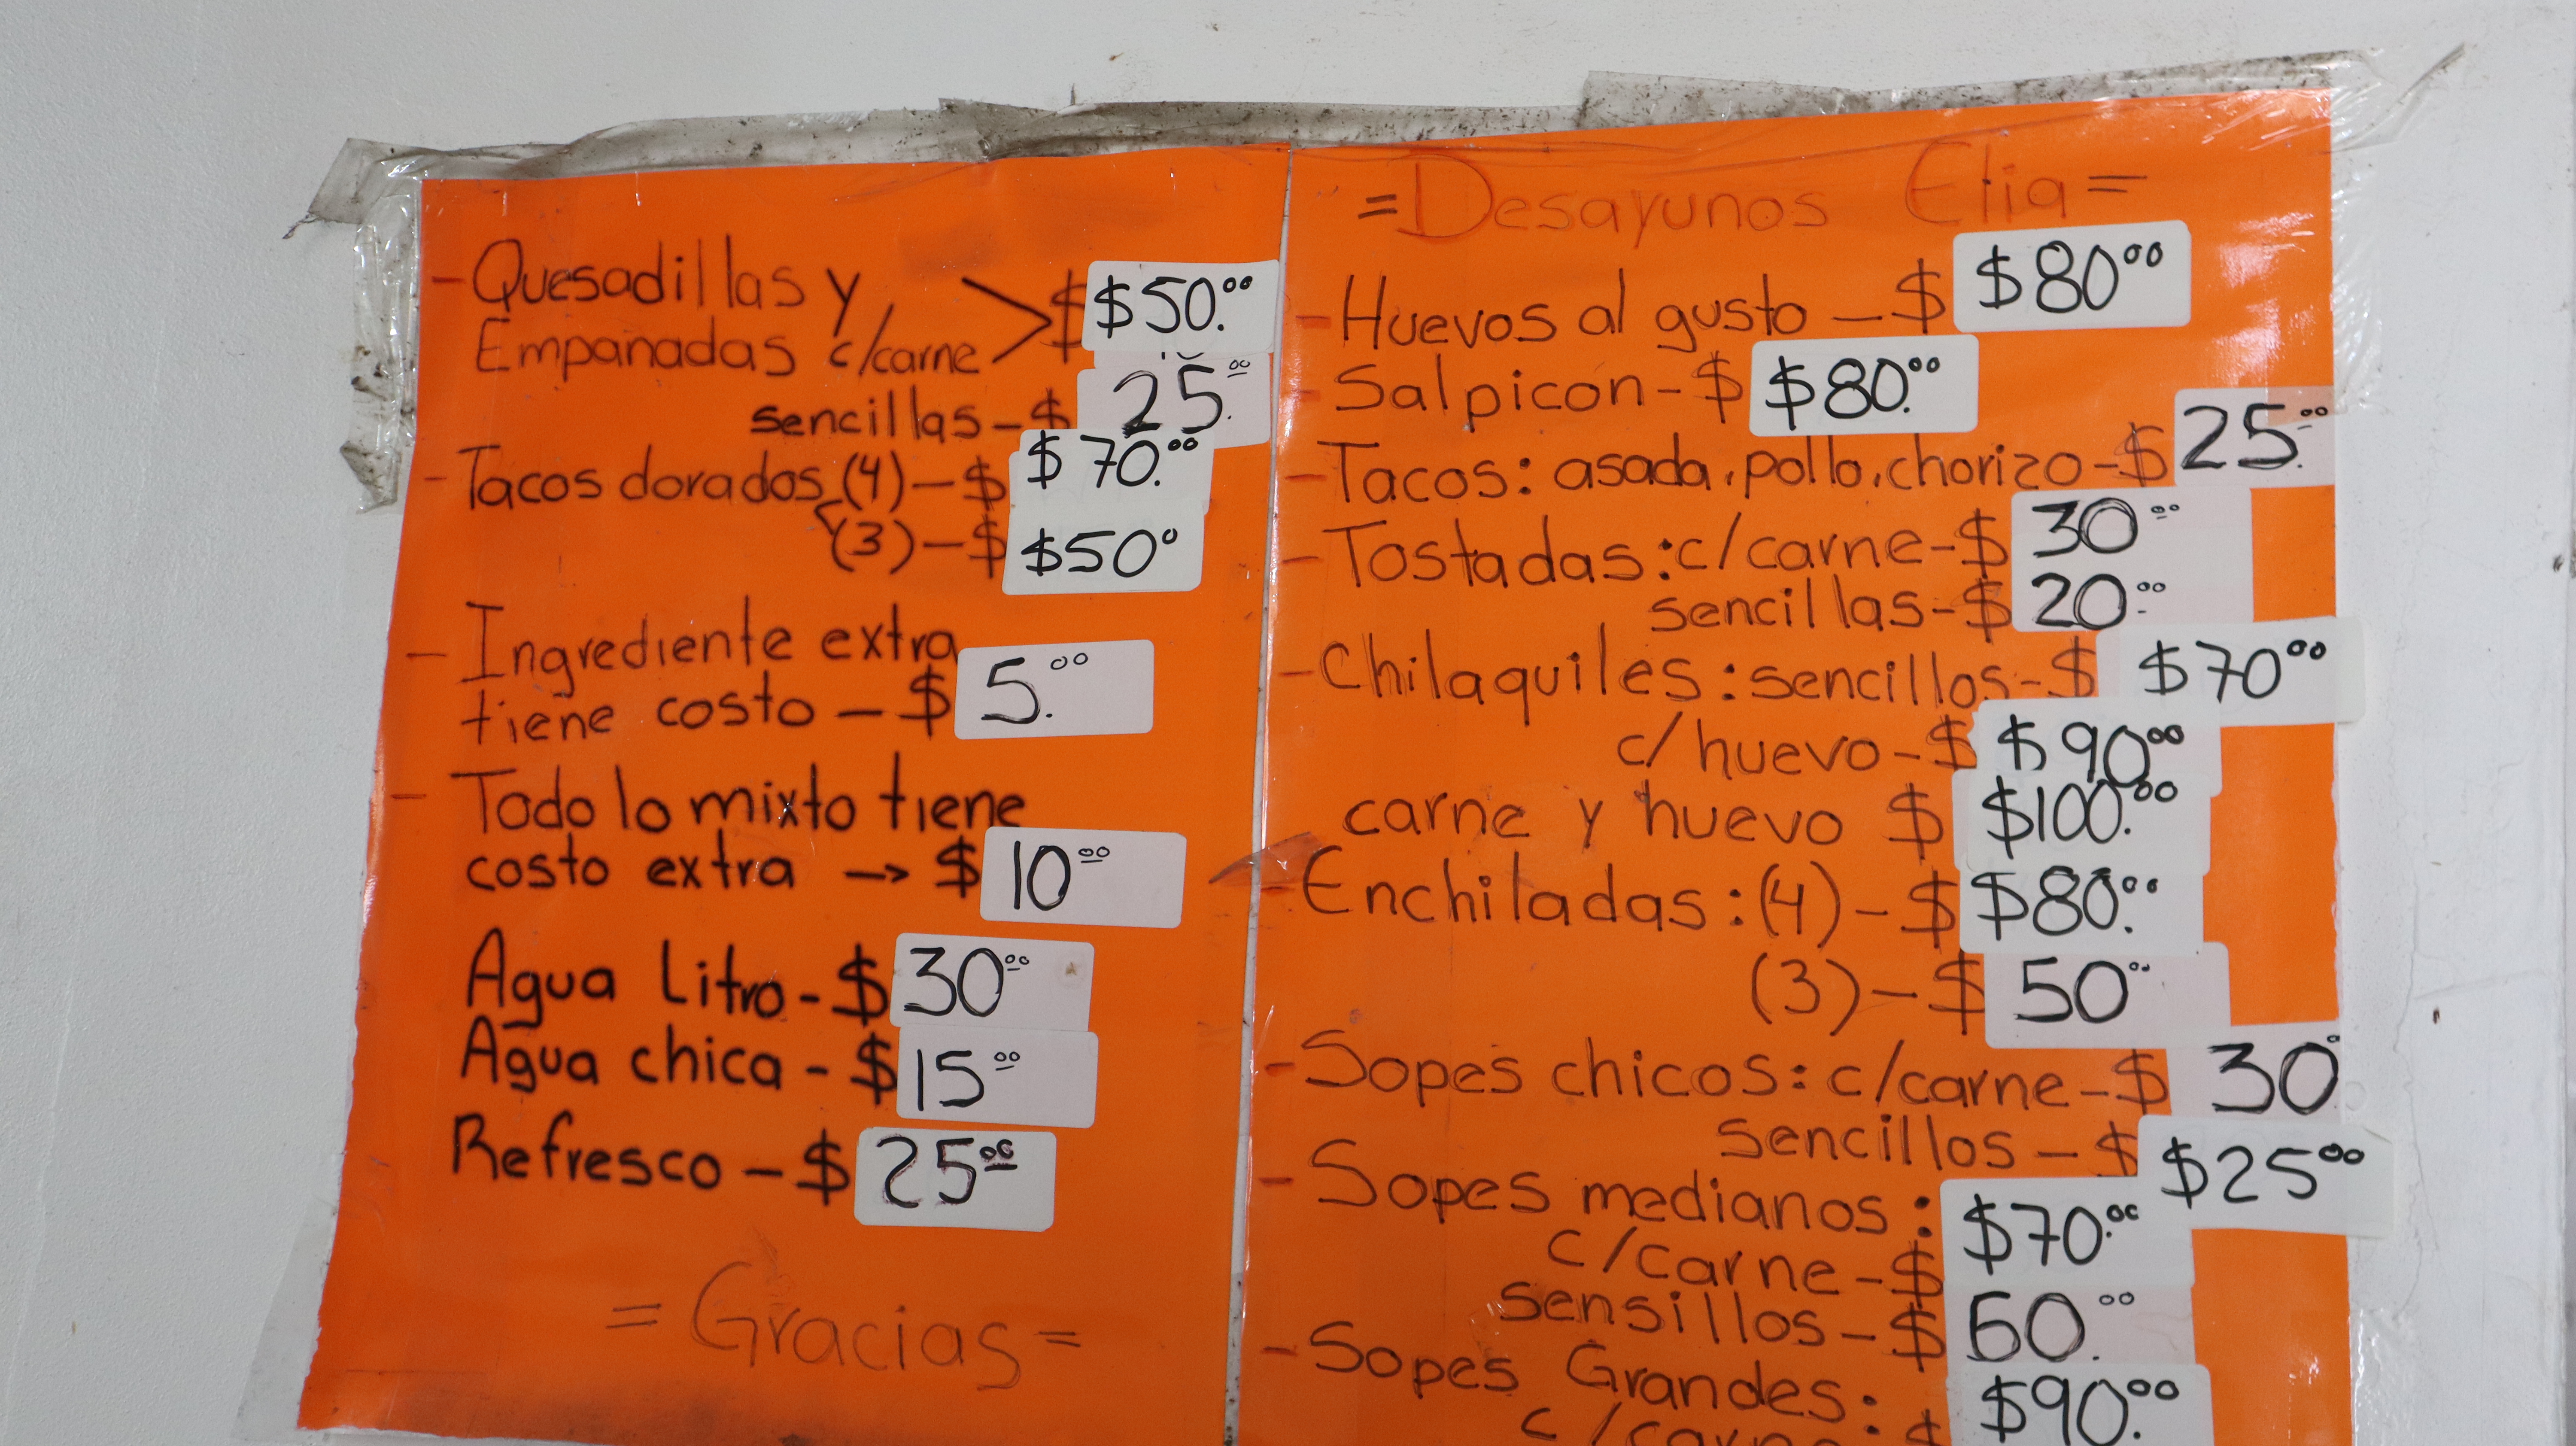 - Quesadillas y
Empanadas c/carne > $ $50.00
sencillas - $ 25.00
- Tacos dorados (4) - $ $70.00
(3) - $ $50°
- Ingrediente extra
tiene costo - $ 5.00
- Todo lo mixto tiene
costo extra → $ 10 00
Agua Litro - $ 30 00
Agua chica - $ 15 00
Refresco - $ 25 00
= Gracias =
= Desayunos Elia =
- Huevos al gusto - $ $80 00
- Salpicon - $ $80.00
- Tacos: asada, pollo, chorizo - $ 25.00
- Tostadas: c/carne - $ 30 00
sencillas - $ 20 00
- Chilaquiles: sencillos - $ $70 00
c/huevo - $ $90 00
carne y huevo $ $100.00
- Enchiladas: (4) - $ $80.00
(3) - $ 50 00
- Sopes chicos: c/carne - $ 30.°
sencillos - $ $25 00
- Sopes medianos:
c/carne - $ $70.00
sensillos - $ 60.00
- Sopes Grandes:
c/carne - $ $90.00